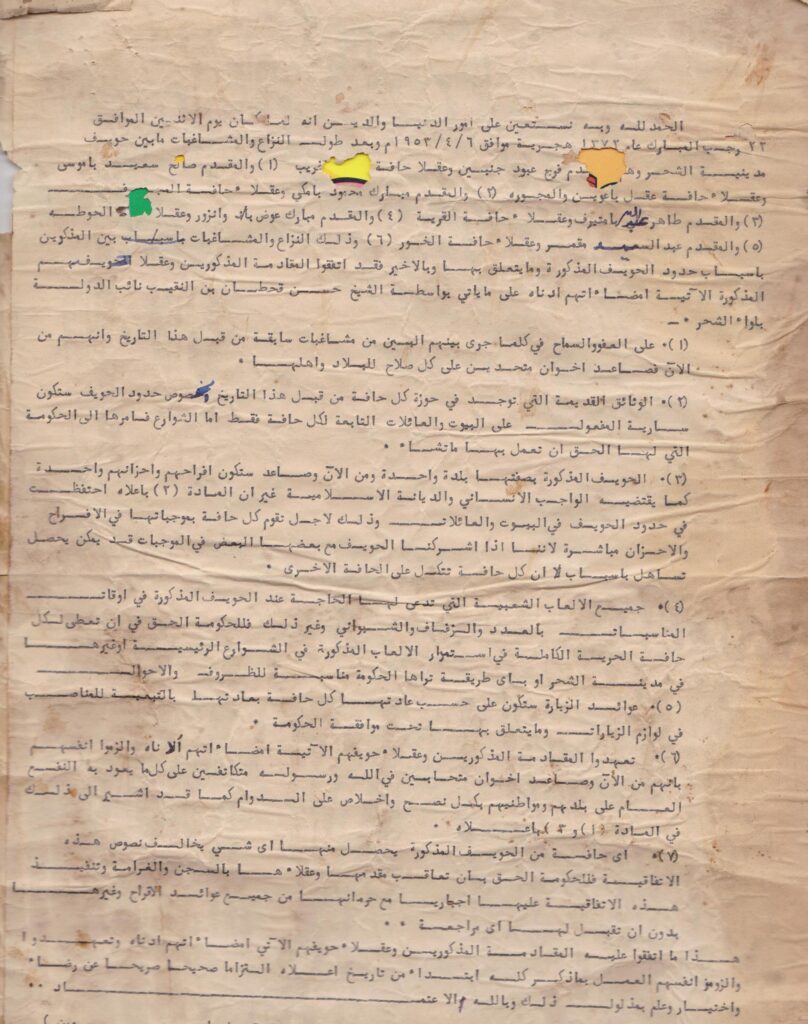 الحمد لله وبه نستعين على امور الدنيا والدين انه لما كان يوم الاثنين الموافق
٢٢ رجب المبارك عام ١٣٧٢ هجرية موافق ٦/٤/١٩٥٣م وبعد طولة النزاع والمشاغبات مابين حويف
مدينة الشحر وهم فرج عبود جنيبين وعقلا حافة غريب (١) والمقدم صالح سعيد باموسى
وعقلاء حافة عقل باعوين والمجوره (٢) والمقدم مبارك محمود بامكي وعقلاء حافة
(٣) والمقدم طاهر عبدالله بامتيرف وعقلاء حافة القرية (٤) والمقدم مبارك عوض وعقلاء الحوطه
(٥) والمقدم عبد السعيد مقمر وعقلاء حافة الخور (٦) وذلك النزاع والمشاغبات باسباب بين المذكوين
باسباب حدود الحويف المذكورة ومايتعلق بها وبالاخير فقد اتفقوا المقادمة المذكورين وعقلا الحويف
المذكورة الآتية امضاءاتهم ادناه على ماياتي بواسطة الشيخ حسن قحطان بن النقيب نائب الدولة
بلواء الشحر ٠ ــ
(١)٠ على العفو والسماح في كلما جرى بينهم البين من مشاغبات سابقة من قبل هذا التاريخ وانهم من
الآن فصاعد اخوان متحدين على كل صلاح للبلاد واهلها ٠
(٢)٠ الوثائق القديمة التي توجد في حوزة كل حافة من قبل هذا التاريخ وبخصوص حدود الحويف ستكون
سارية المفعول على البيوت والعائلات التابعة لكل حافة فقط اما الشوارع فامرها الى الحكومة
التي لها الحق ان تعمل بها ماتشاء ٠
(٣)٠ الحويف المذكورة بصفتها بلدة واحدة ومن الآن وصاعد ستكون افراحهم واحزانهم واحدة
كما يقتضيه الواجب الانساني والديانة الاسلامية غير ان المادة (٢) باعلاه احتفظت
في حدود الحويف في البيوت والعائلات وذلك لاجل تقوم كل حافة بموجباتها في الافراح
والاحزان مباشرة لاننا اذا اشركنا الحويف مع بعضها البعض في الموجبات قد يمكن يحصل
تساهل باسباب لا ان كل حافة تتكل على الحافة الاخرى ٠
(٤)٠ جميع الالعاب الشعبية التي تدعى لها الحاجة عند الحويف المذكورة في اوقات
المناسبات بالعدد والزفاف والشبواني وغير ذلك فللحكومة الحق في ان تعطى لكل
حافة الحرية الكاملة في استمرار الالعاب المذكورة في الشوارع الرئيسية اوغيرها
في مدينة الشحر او باى طريقة تراها الحكومة مناسبة للظروف والاحوال
(٥)٠ عوائد الزيارة ستكون على حسب عادتها كل حافة بعادتها بالتبعية للمناصب
في لوازم الزيارات ومايتعلق بها تحت موافقة الحكومة ٠
(٦)٠ تعهدوا المقادمة المذكورين وعقلاء حويفهم الآتية امضاءاتهم الادناه والزموا انفسهم
بانهم من الآن وصاعد اخوان متحابين في الله ورسوله متكاتفين على كل ما يعود به النفع
العام على بلدهم ومواطنيهم بكل نصح واخلاص على الدوام كما قد اشير الى ذلك
في المادة (١) و باعلاه ٠
(٧)٠ اى حافة من الحويف المذكورة يحصل منها اى شىي يخالف نصوص هذه
الاتفاقية فللحكومة الحق بان تعاقب مقدمها وعقلاءها بالسجن والغرامة وتنفيذ
هذه الاتفاقية عليها اجباريا مع حرمانها من جميع عوائد الافراح وغيرها
بدون ان تقبل لها اى مراجعة ٠ ٠
هذا ما اتفقوا عليه المقادمة المذكورين وعقلاء حويفهم الآتي امضاءاتهم ادناه وتعهدوا
والزومز انفسهم العمل بماذكر كله ابتداء من تاريخ اعلاه التزاما صحيحا صريحا عن رضاء
واختيار وعلم بمدلول ذلك وبالله الاعتماد ٠٠